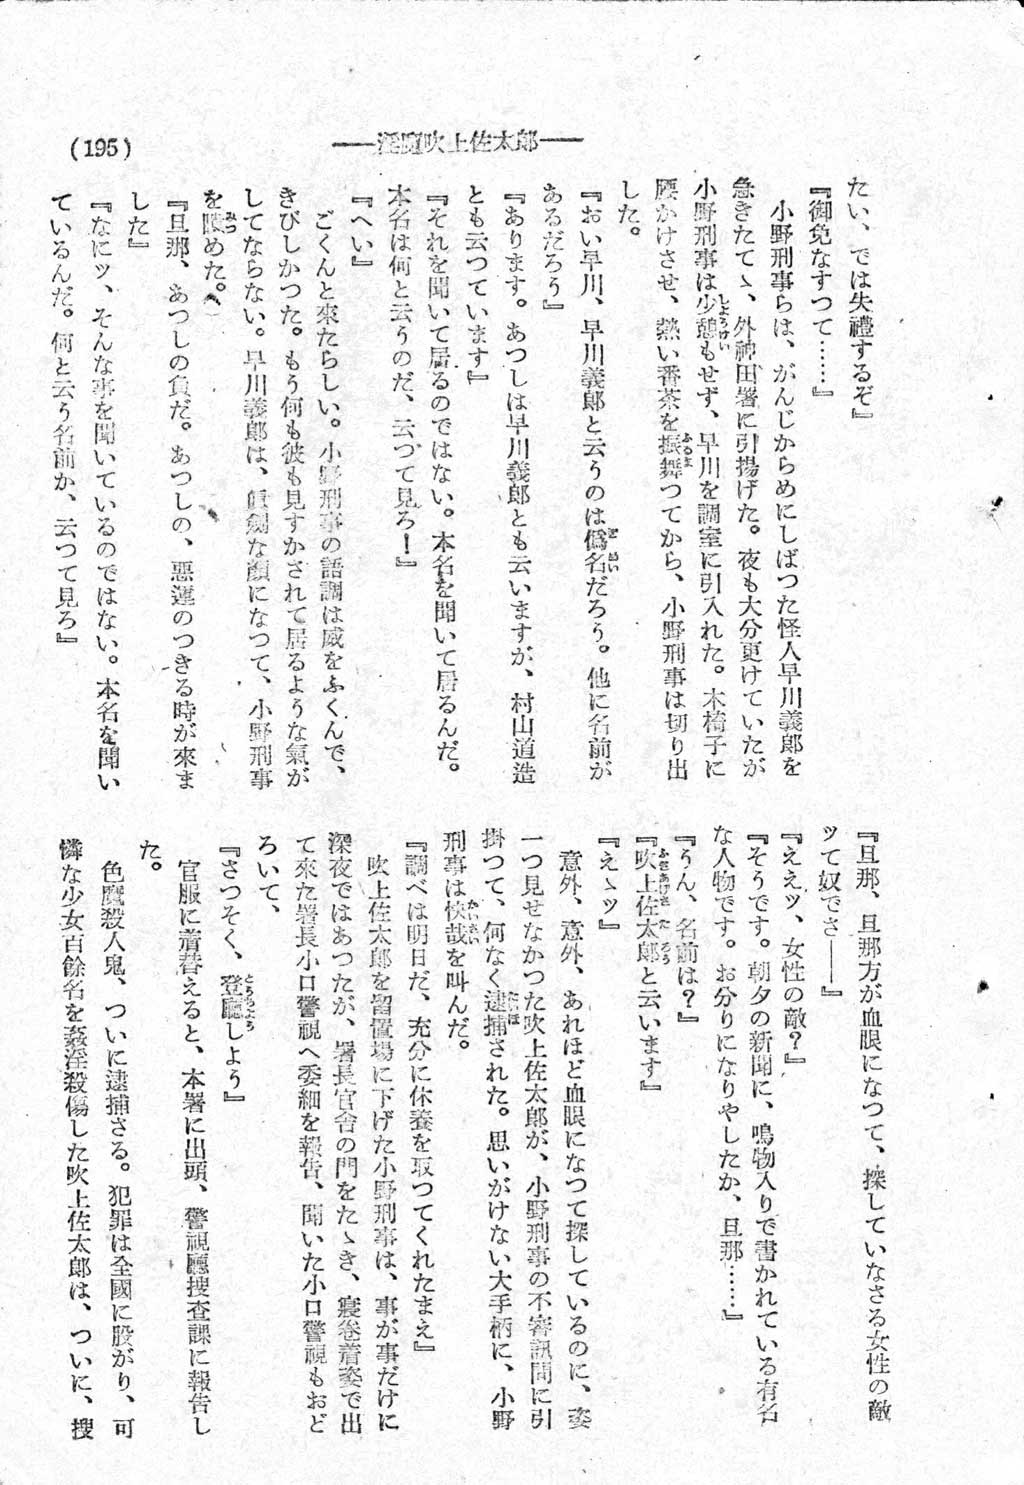 (195)
――淫魔吹上佐太郎――
たい、では失禮するぞ』
『御免なすつて……』
小野刑事らは、がんじからめにしばつた怪人早川義郎を
急きたてゝ、外神田署に引揚げた。夜も大分更けていたが
小野刑事は少憩もせず、早川を調室に引入れた。木椅子に
腰かけさせ、熱い番茶を振舞つてから、小野刑事は切り出
した。
『おい早川、早川義郎と云うのは僞名だろう。他に名前が
あるだろう』
『あります。あつしは早川義郎とも云いますが、村山道造
とも云つています』
『それを聞いて居るのではない。本名を聞いて居るんだ。
本名は何と云うのだ、云つて見ろ！』
『へい』
ごくんと來たらしい。小野刑事の語調は威をふくんで、
きびしかつた。もう何も彼も見すかされて居るような氣が
してならない。早川義郎は、眞劍な顔になつて、小野刑事
を瞶めた。
『旦那、あつしの負だ。あつしの、悪運のつきる時が來ま
した』
『なにッ、そんな事を聞いているのではない。本名を聞い
ているんだ。何と云う名前か、云つて見ろ』
『旦那、旦那方が血眼になつて、探していなさる女性の敵
ッて奴でさ――』
『ええッ、女性の敵？』
『そうです。朝夕の新聞に、鳴物入りで書かれている有名
な人物です。お分りになりやしたか、旦那……』
『うん、名前は？』
『吹上佐太郎と云います』
『えゝッ』
意外、意外、あれほど血眼になつて探しているのに、姿
一つ見せなかつた吹上佐太郎が、小野刑事の不審訊問に引
掛つて、何なく逮捕された。思いがけない大手柄に、小野
刑事は快哉を叫んだ。
『調べは明日だ、充分に休養を取つてくれたまえ』
吹上佐太郎を留置場に下げた小野刑事は、事が事だけに
深夜ではあつたが、署長官舎の門をたゝき、寝巻着姿で出
て來た署長小口警視へ委細を報告、聞いた小口警視もおど
ろいて、
『さつそく、登廳しよう』
官服に着替えると、本署に出頭、警視廳捜査課に報告し
た。
色魔殺人鬼、ついに逮捕さる。犯罪は全國に股がり、可
憐な少女百餘名を姦淫殺傷した吹上佐太郎は、ついに、捜